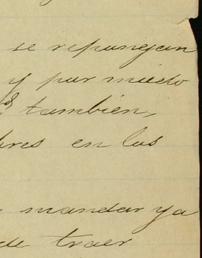 se reponejan
y por miedo
tambien,
bres en las
mandar ya
de traer